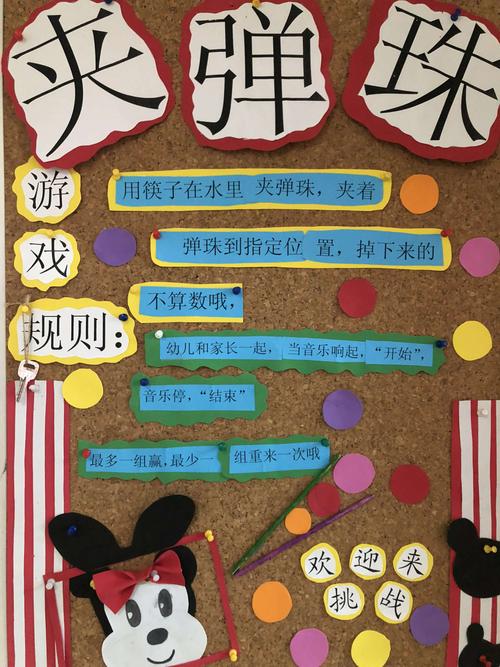 夹弹珠
游戏规则：
用筷子在水里 夹弹珠，夹着
弹珠到指定位 置，掉下来的
不算数哦，
幼儿和家长一起，当音乐响起，“开始”，
音乐停，“结束”
最多一组赢,最少一 组重来一次哦
欢迎来
挑战